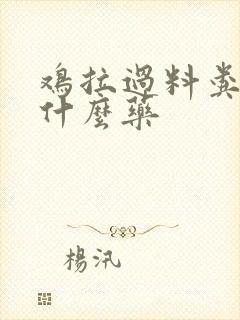 鴻拉過料糞
什麼藥
楊汛